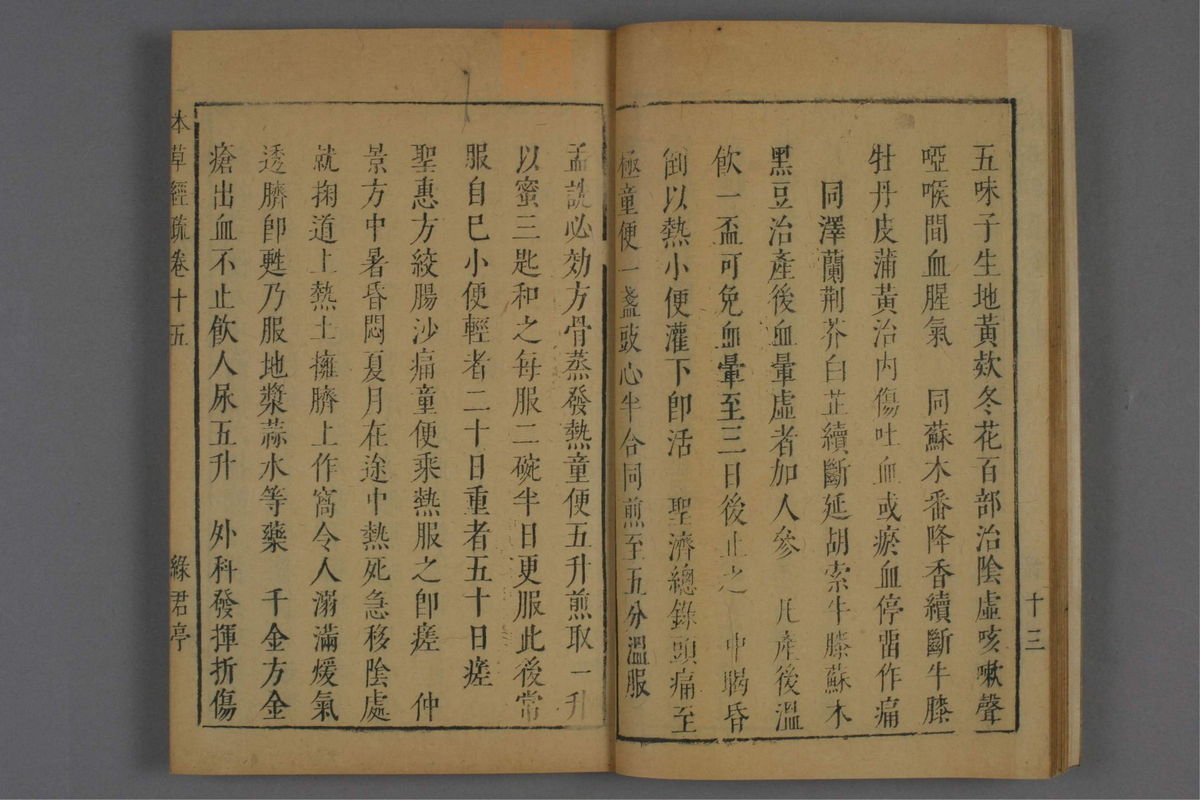 五味子生地黃欬冬花百部治陰虛咳嗽聲
啞喉間血腥氣　同蘇木番降香續斷牛膝
牡丹皮蒲黃治內傷吐血或瘀血停畱作痛
同澤蘭荆芥白芷續斷延胡索牛膝蘇木
黑豆治產後血暈虛者加人參　凡產後溫
飲一盃可免血暈至三日後止之　中暍昏
倒以熱小便灌下卽活　聖濟總錄頭痛至
極童便一盞豉心半合同煎至五分溫服
十三
孟詵必効方骨蒸發熱童便五升煎取一升
以蜜三匙和之每服二碗半日更服此後常
服自己小便輕者二十日重者五十日瘥
聖惠方絞腸沙痛童便乘熱服之卽瘥　仲
景方中暑昏悶夏月在途中熱死急移陰處
就掬道上熱土擁臍上作窩令人溺滿煖氣
透臍卽甦乃服地漿蒜水等藥　千金方金
瘡出血不止飲人尿五升　外科發揮折傷
本草經疏卷十五
綠君亭